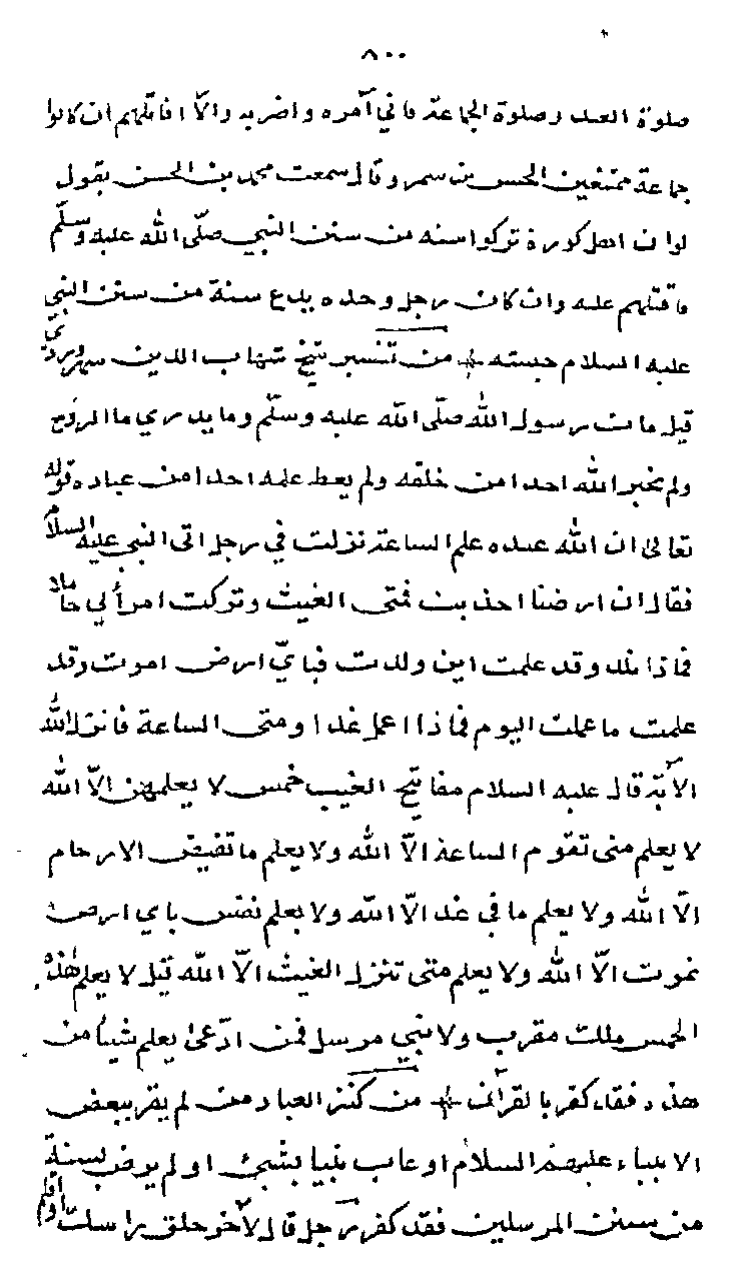 ٨٠٠
صلوة العيد وصلوة الجماعة فاني آمره واضربه والّا اقاتلهم ان كانوا
جماعة ممتنعين الحسن بن سمر وقال سمعت محمد بن الحسن يقول
لو ان اهل كورة تركوا سنه من سنن النبي صلّى الله عليه وسلّم
قاتلتهم عليه وان كان رجل وحده يدع سنة من سنن النبي
عليه السلام حبسته من تفسير شيخ شهاب الدين سهروردي
قيل مات رسول الله صلّى الله عليه وسلّم وما يدري ما الروح
ولم يخبر الله احدا من خلقه ولم يعط علمه احدا من عباده قوله
تعالى ان الله عنده علم الساعة نزلت في رجل اتى النبي عليه السلام
فقال ان ارضنا اجدبت فمتى الغيث وتركت امرأتي حاملا
فماذا تلد وقد علمت اين ولدت فبايّ ارض اموت وقد
علمت ما عملت اليوم فماذا اعمل غدا ومتى الساعة فانزل الله
الآية قال عليه السلام مفاتيح الغيب خمس لا يعلمهن الّا الله
لا يعلم متى تقوم الساعة الّا الله ولا يعلم ما تغيض الارحام
الّا الله ولا يعلم ما في غد الّا الله ولا يعلم نفس باي ارض
تموت الّا الله ولا يعلم متى تنزل الغيث الّا الله قيل لا يعلم هذه
الخمس ملك مقرب ولا نبي مرسل فمن ادّعى يعلم شيئا من
هذه فقد كفر بالقرآن من كنز العباد من لم يقر ببعض
الانبياء عليهم السلام او عاب نبيا بشئ او لم يرض بسنة
من سنن المرسلين فقد كفر رجل قال لآخر حلق راسك